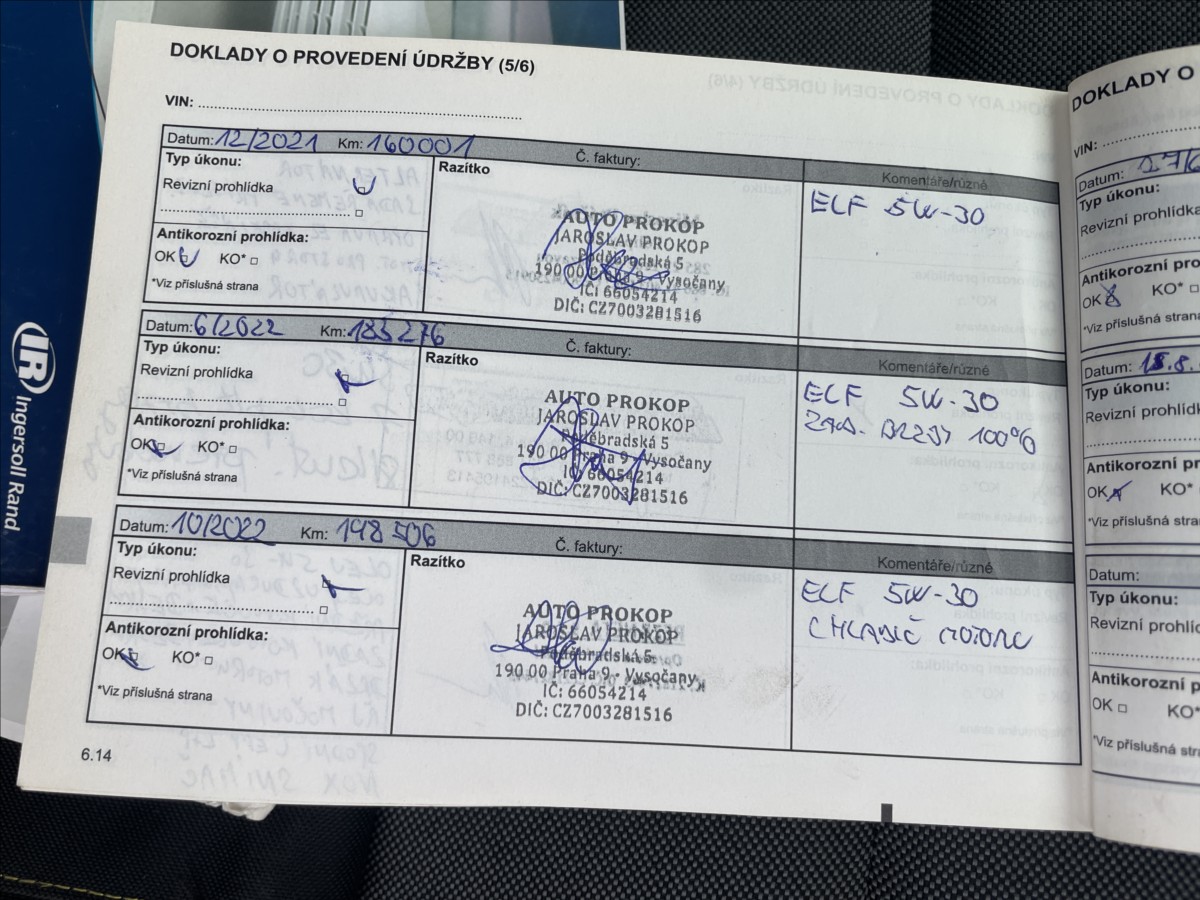 DOKLADY O PROVEDENÍ ÚDRŽBY (5/6)
VIN:
Datum: 12/2021 Km: 160001 Č. faktury:
Typ úkonu:
Revizní prohlídka
Antikorozní prohlídka:
OK KO*
*Viz příslušná strana
Razítko
AUTO PROKOP
JAROSLAV PROKOP
Poděbradská 5
190 00 Praha 9 - Vysočany
IČ: 66054214
DIČ: CZ7003281516
Komentáře/různé
ELF 5W-30
Datum: 6/2022 Km: 185276 Č. faktury:
Typ úkonu:
Revizní prohlídka
Antikorozní prohlídka:
OK KO*
*Viz příslušná strana
Razítko
AUTO PROKOP
JAROSLAV PROKOP
Poděbradská 5
190 00 Praha 9 - Vysočany
IČ: 66054214
DIČ: CZ7003281516
Komentáře/různé
ELF 5W-30
ZAD. BRZDY 100%
Datum: 10/2022 Km: 198506 Č. faktury:
Typ úkonu:
Revizní prohlídka
Antikorozní prohlídka:
OK KO*
*Viz příslušná strana
Razítko
AUTO PROKOP
JAROSLAV PROKOP
Poděbradská 5
190 00 Praha 9 - Vysočany
IČ: 66054214
DIČ: CZ7003281516
Komentáře/různé
ELF 5W-30
CHLADIČ MOTORU
6.14
IR Ingersoll Rand
DOKLADY O
VIN:
Datum:
Typ úkonu:
Revizní prohlíd
Antikorozní pro
OK KO*
*Viz příslušná stra
Datum: 18.8.
Typ úkonu:
Revizní prohlíd
Antikorozní pro
OK KO*
*Viz příslušná stra
Datum:
Typ úkonu:
Revizní prohlíd
Antikorozní p
OK KO*
*Viz příslušná str